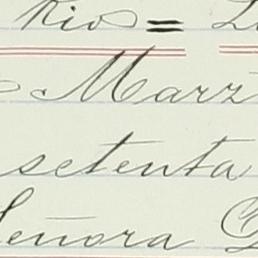 Rio =
Marz
setenta
Señora